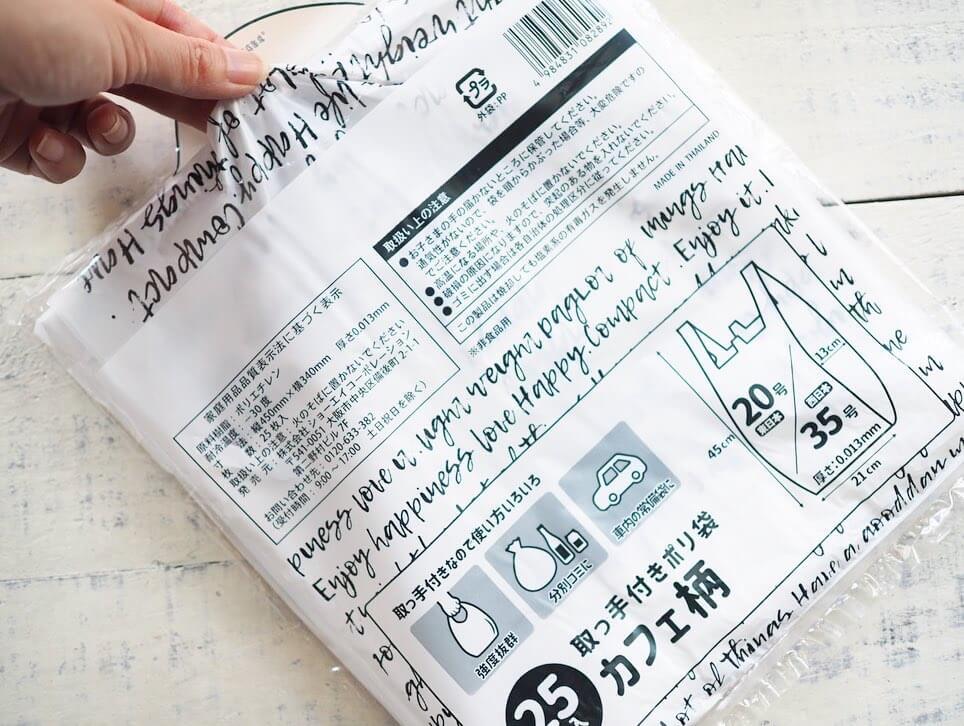 4 984831 08282
プラ
外袋:PP
取扱い上の注意
●お子さまの手の届かないところに保管してください。
通気性がないので、袋を頭からかぶった場合等、大変危険ですの
でご注意ください。
●高温になる場所や、火のそばに置かないでください。
●破損の原因になりますので、突起のある物を入れないでください。
●ゴミに出す場合は各自治体の処理区分に従ってください。
この製品は焼却しても塩素系の有毒ガスを発生しません。
※非食品用
MADE IN THAILAND
家庭用品品質表示法に基づく表示
原料樹脂:ポリエチレン 厚さ0.013mm
耐冷温度:-30度
寸法:縦450mm×横340mm
枚数:25枚入
取扱い上の注意:火のそばに置かないでください
発売元:株式会社ショーエイコーポレーション
〒541-0051 大阪市中央区備後町2-1-1
第二野村ビル7F
お問い合わせ先:0120-633-382
(受付時間:9:00~17:00 土日祝日を除く)
Enjoy happiness love Happy. Compact. Enjoy it.
20号
東日本
35号
西日本
13cm
45cm
厚さ:0.013mm
21cm
取っ手付きなので使い方いろいろ
強度抜群
分別ゴミに
車内の常備袋に
取っ手付きポリ袋
カフェ柄
25
lot of things Have a good day